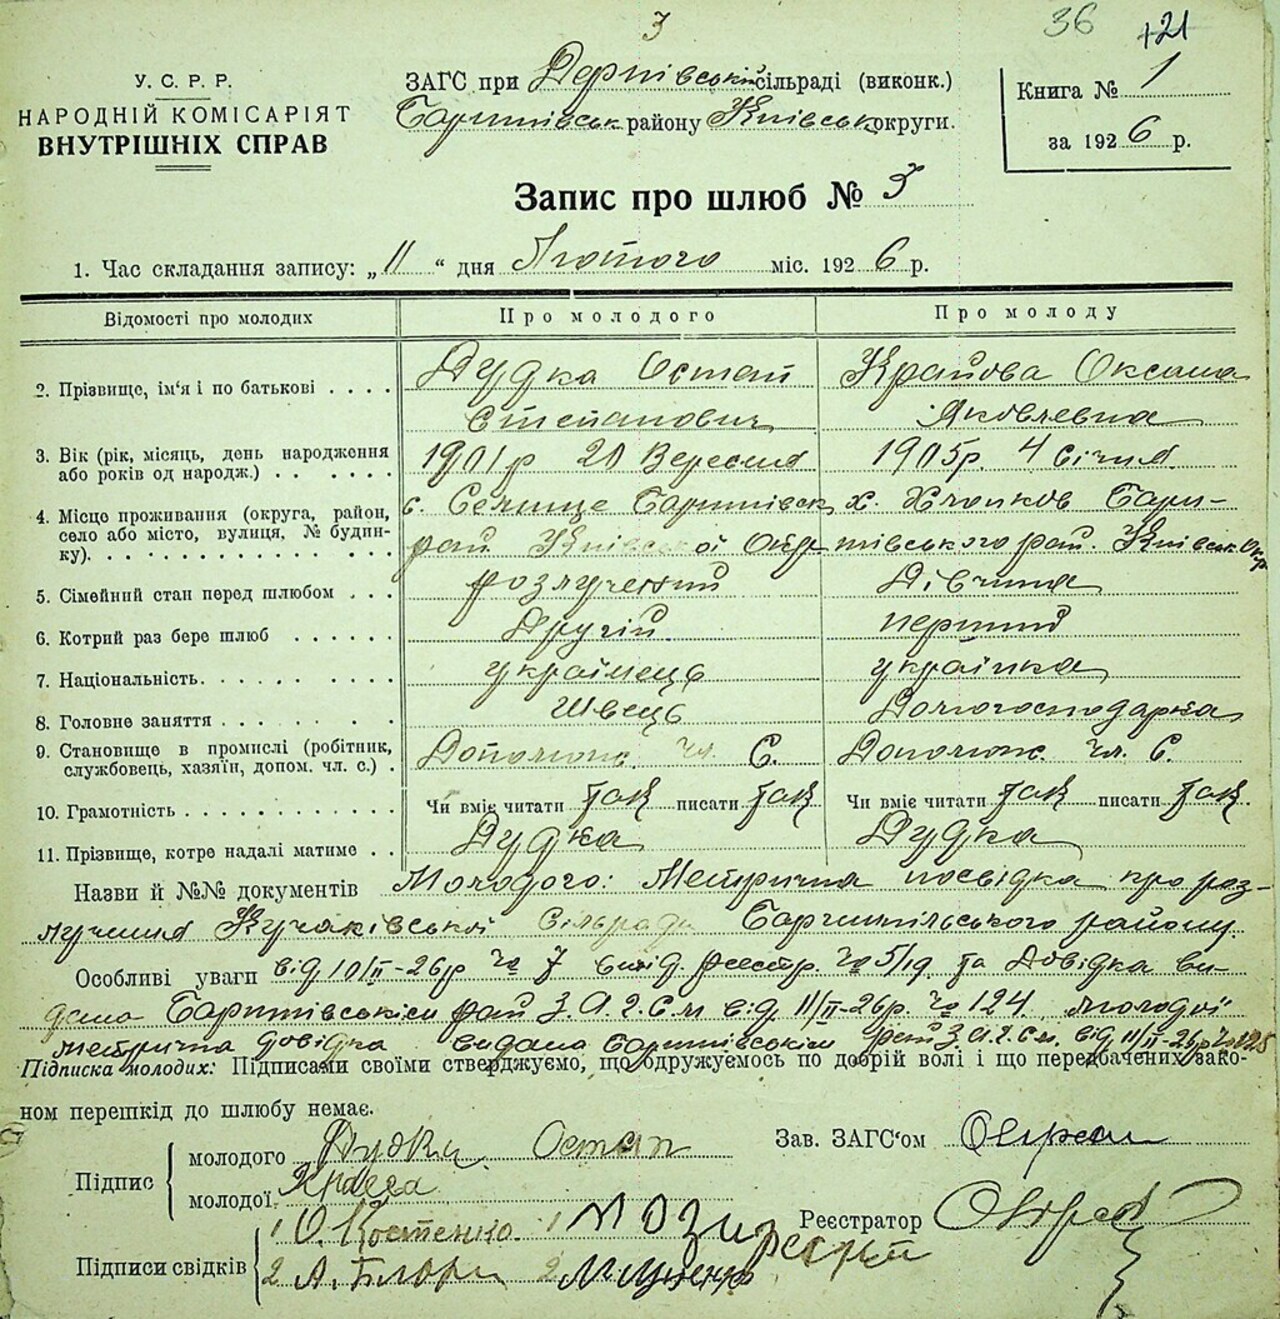 3
36
121
У. С. Р. Р.
НАРОДНІЙ КОМІСАРІЯТ
ВНУТРІШНІХ СПРАВ
ЗАГС при Дернівській сільраді (виконк.)
Баришівськ району Київськ округи.
Книга № 1
за 1926 р.
Запис про шлюб № 3
1. Час складання запису: „11“ дня Лютого міс. 1926 р.
Відомості про молодих
Про молодого
Про молоду
2. Прізвище, ім'я і по батькові
Дудка Остап Степанович
Крайова Оксана Яковлевна
3. Вік (рік, місяць, день народження
або років од народж.)
1901р 20 Вересня
1905р. 4 Січня
4. Місце проживання (округа, район,
село або місто, вулиця, № будин-
ку).
с. Селище Баришівськ
рай. Київської Окр
х. Хлопков Бари-
шівського рай. Київськ. Окр
5. Сімейний стан перед шлюбом
розлучений
Дівчина
6. Котрий раз бере шлюб
Другій
перший
7. Національність
українець
українка
8. Головне заняття
Швець
Домогосподарка
9. Становище в промислі (робітник,
службовець, хазяїн, допом. чл. с.)
Допомож. Чл. С.
Допомож. Чл. С.
10. Грамотність
Чи вміє читати так писати так
Чи вміє читати так писати так
11. Прізвище, котре надалі матиме
Дудка
Дудка
Назви й №№ документів Молодого: Метрична посвідка про роз-
лучення Кучаківської Сільради Баришпільського району.
Особливі уваги від 10/II-26р № 7 реестр. № 5/19 та Довідка ви-
дана Баришівським рай З.А.Г.С.м від 11/II-26р. № 124. молодої
метрична довідка видана Баришівським рай З.А.Г.С.м. від 11/II-26р № 125
Підписка молодих: Підписами своїми стверджуємо, що одружуємось по добрій волі і що передбачених зако-
ном перешкід до шлюбу немає.
Підпис
молодого Дудка Остап
молодої
Зав. ЗАГС'ом
Реєстратор
Підписи свідків
1 О. Костенко. 1
2 А. 2